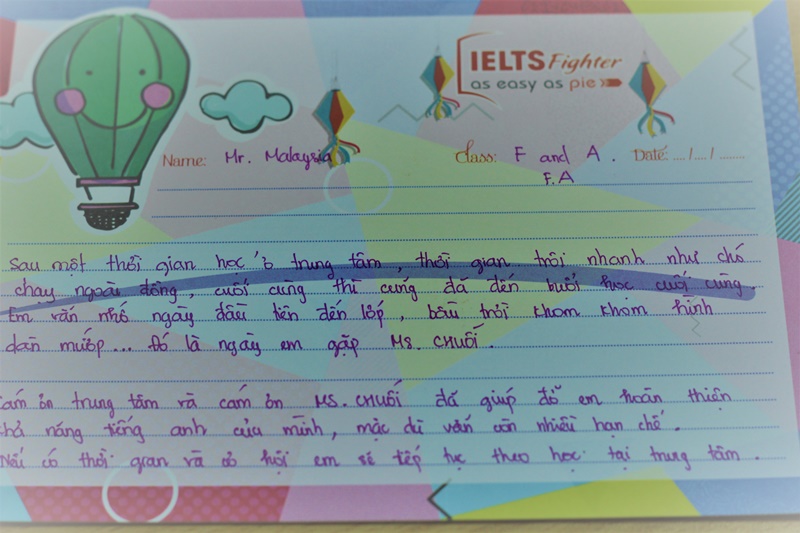 IELTS Fighter
as easy as pie
Name: Mr. Malaysia Class: F and A. Date: .... /.... / ........
F.A
Sau một thời gian học ở trung tâm, thời gian trôi nhanh như chó
chạy ngoài đồng, cuối cùng thì cũng đã đến buổi học cuối cùng.
Em vẫn nhớ ngày đầu tiên đến lớp, bầu trời khom khom hình
dàn mướp... Đó là ngày em gặp Ms. CHUỐI.
Cảm ơn trung tâm và cảm ơn MS. CHUỐI đã giúp đỡ em hoàn thiện
khả năng tiếng anh của mình, mặc dù vẫn còn nhiều hạn chế.
Nếu có thời gian và cơ hội em sẽ tiếp tục theo học tại trung tâm.